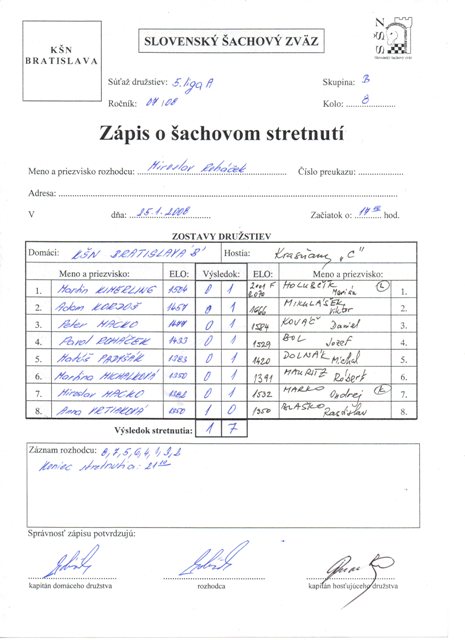 KŠN
BRATISLAVA
SLOVENSKÝ ŠACHOVÝ ZVÄZ
Súťaž družstiev: 5. liga A
Skupina: B
Ročník: 07/08
Kolo: 8
Zápis o šachovom stretnutí
Meno a priezvisko rozhodcu: Miroslav Roháček
Číslo preukazu:
Adresa:
V dňa: 25.1.2008 Začiatok o: hod.
ZOSTAVY DRUŽSTIEV
Domáci: KŠN BRATISLAVA "B" Hostia: Krasňany „C"
Meno a priezvisko: ELO: Výsledok: ELO: Meno a priezvisko:
1. Martin KIMERLING 1524 0 1 HOLUBČÍK Marián 1.
2. Adam 1457 0 1 1666 MIKULÁŠEK Viktor 2.
3. Peter MACKO 0 1 1584 KOVÁČ Daniel 3.
4. Pavol ROHÁČEK 1433 0 1 1529 BOL Jozef 4.
5. Matúš 1283 0 1 1420 DOLNÁK Michal 5.
6. Martina MICHALKOVÁ 1250 0 1 1391 MAURITZ Róbert 6.
7. Miroslav MACKO 0 1 1532 MARKO Ondrej 7.
8. Anna 1250 1 0 1350 BLAŠKO Rastislav 8.
Výsledok stretnutia: 1 7
Záznam rozhodcu: 8,7,5,6,4,1,3,2
Koniec stretnutia: 21
Správnosť zápisu potvrdzujú:
kapitán domáceho družstva rozhodca kapitán hosťujúceho družstva